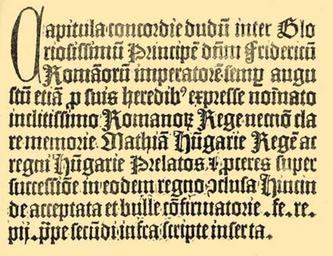 Capitula concordie dudū inter Glo
riosissimū Principē dn̄m Fridericū
Romāorū imperatorē semꝑ augu
stū etiā ꝓ suis heredibꝰ expresse noīato
inclitissimo Romanoꝝ Rege necnō cla
re memorie Mathiā Hūgarie Regē ac
regni Hūgarie Prelatos ⁊ ꝓceres super
successiōe in eodem regno ꝯclusa Hincin
de acceptata et bulle cōfirmatorie . fe . re .
pij . ꝓpe secūdi infra scripte inserta .